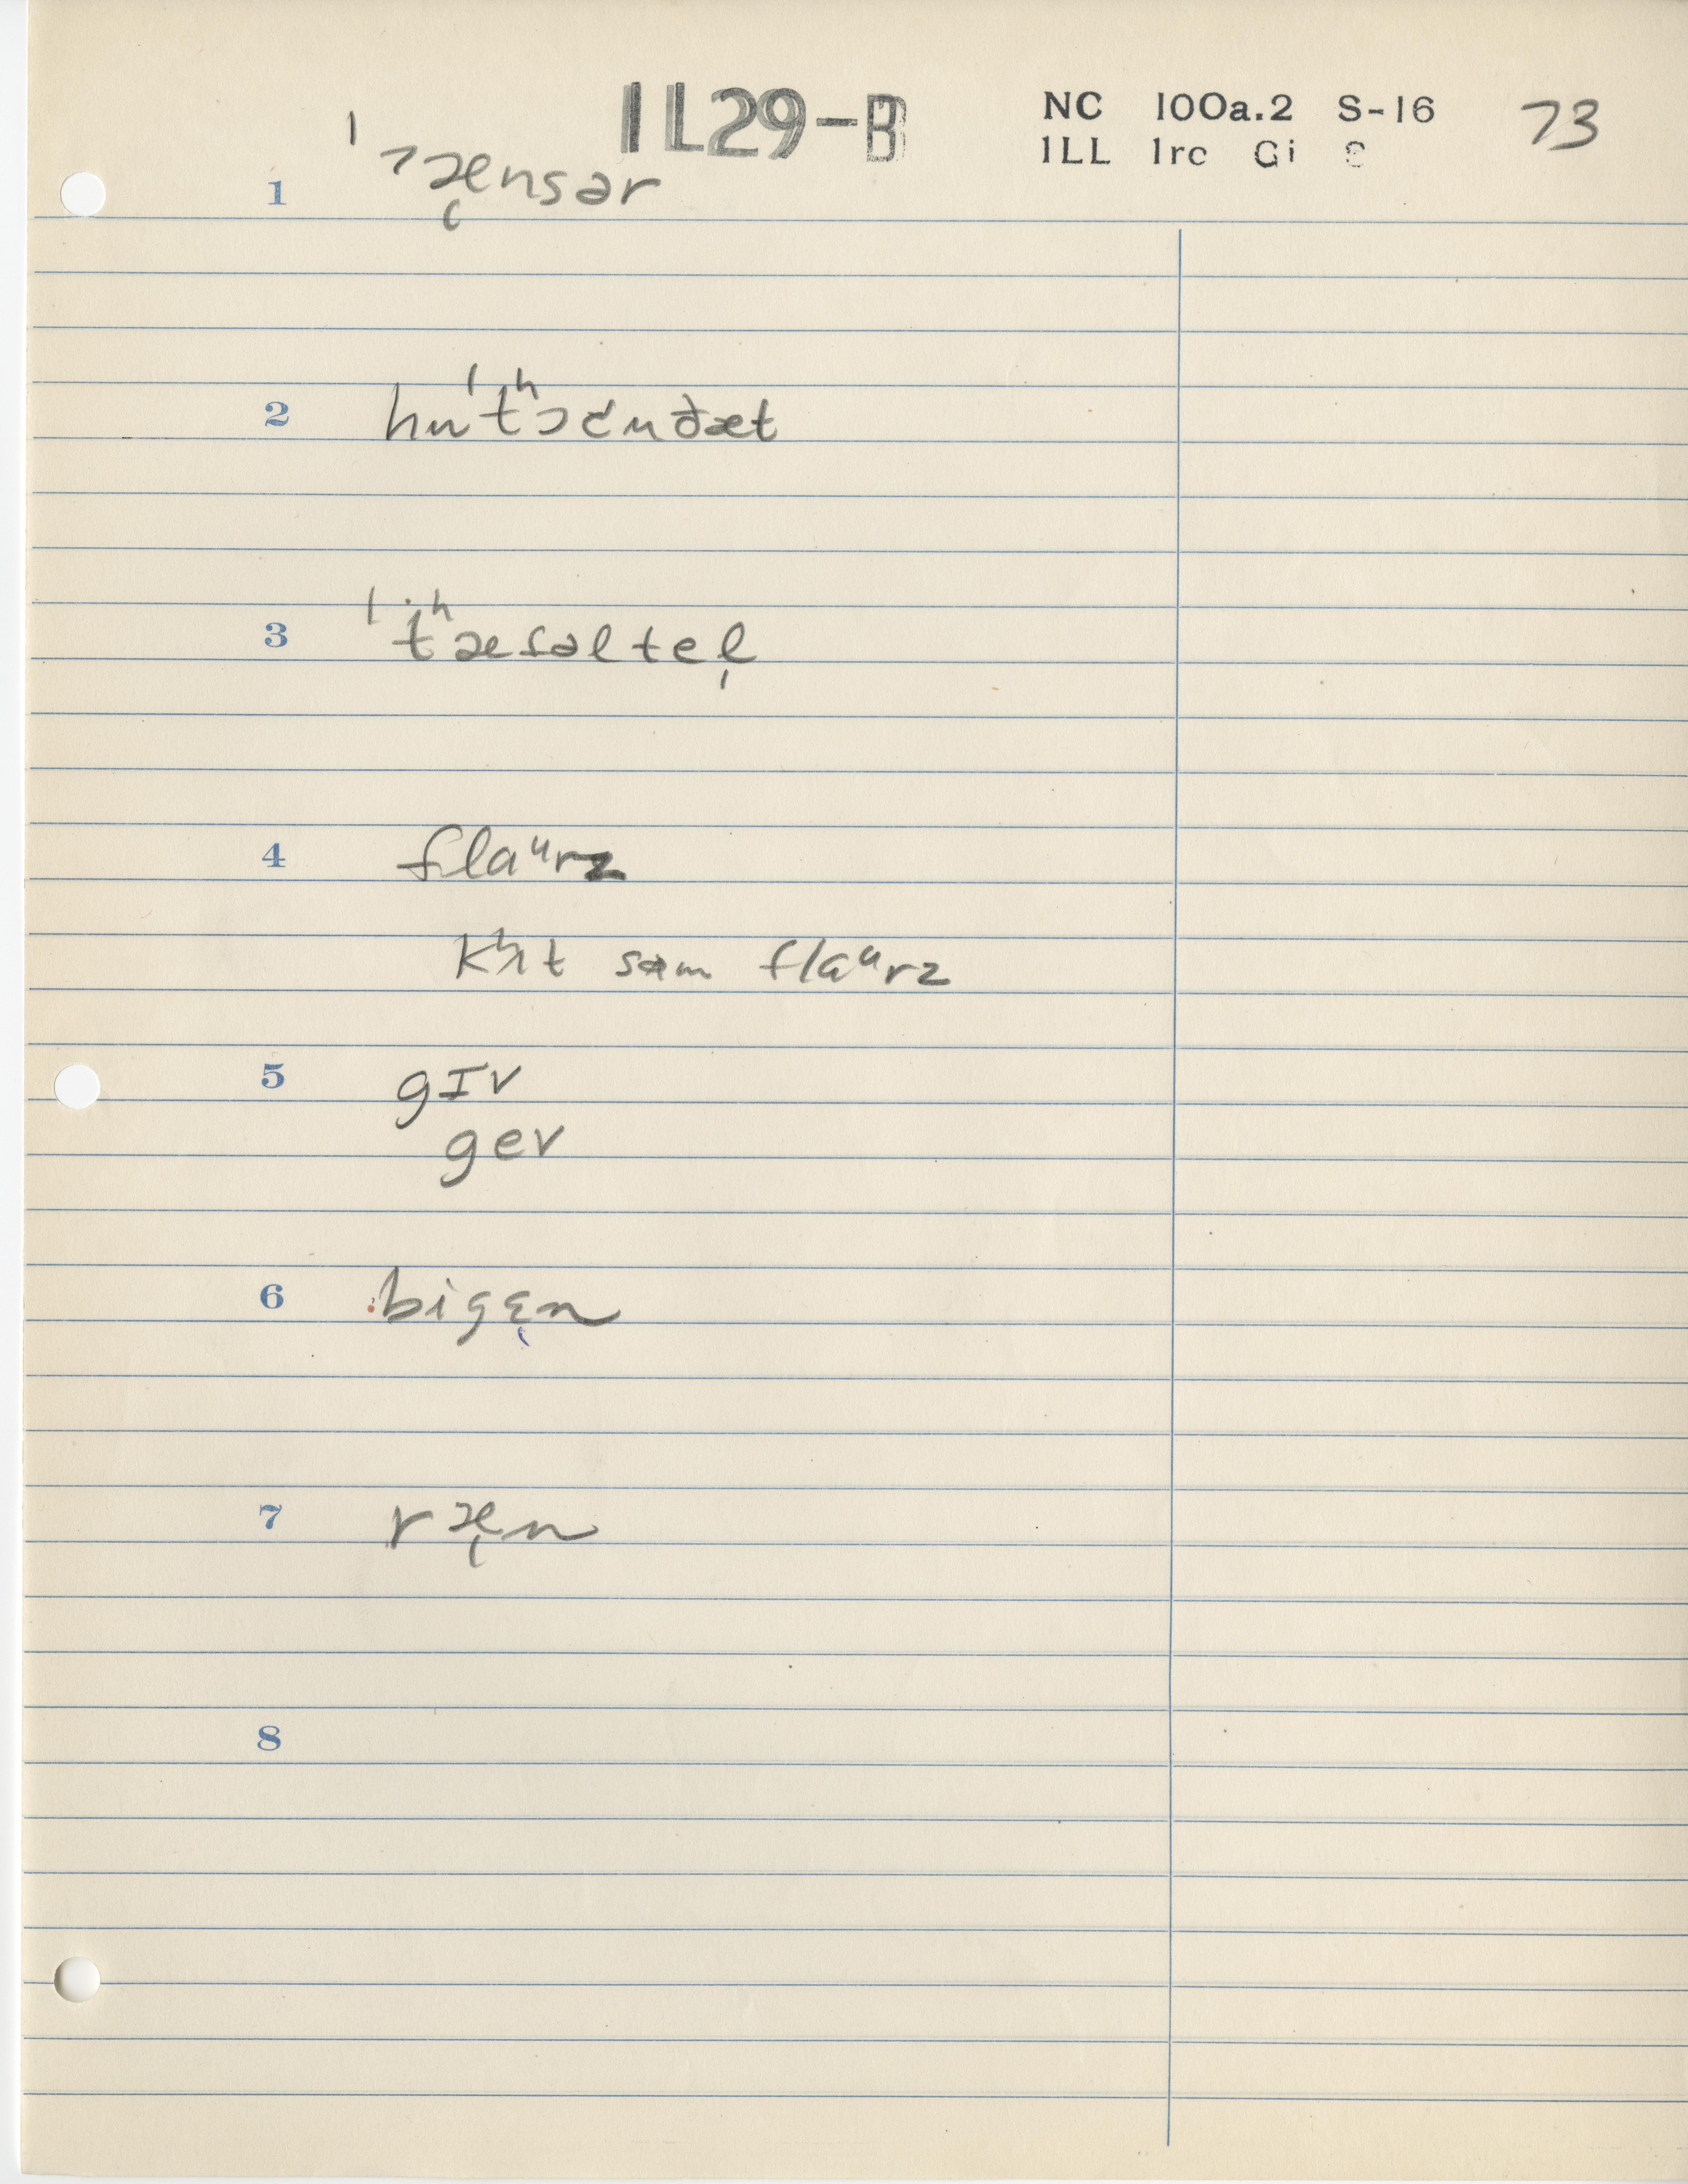 1L29-B
NC 100a.2 S-16 73
1LL 1rc Gi
1 ˈʔæ̨nsər
2 huˈtʰɔčuðæt
3 ˈtʰæsəltel̩
4 flaᵘrz
kʰʌt səm flaᵘrz
5 gɪv
gev
6 bigɛ̨n
7 ræ̨n
8